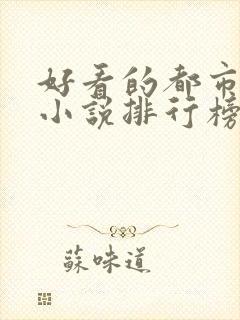 好看的都市
小说排行榜
蘇味道